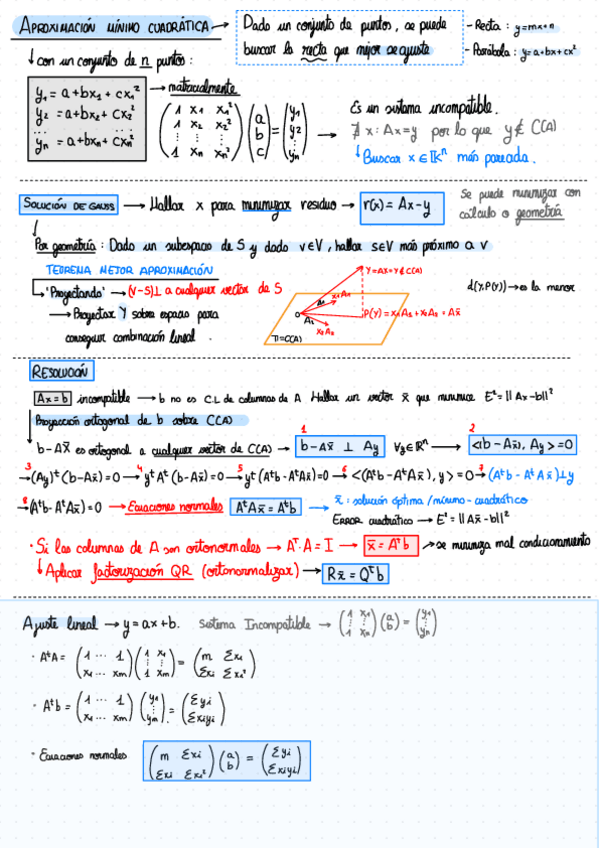 APROXIMACIÓN MÍNIMO CUADRÁTICA → Dado un conjunto de puntos, se puede buscar la recta que mejor se ajuste
- Recta: y=mx+n
- Parábola: y=a+bx+cx²
↓ con un conjunto de n puntos:
y₁ = a+bx₁ + cx₁²
y₂ = a+bx₂ + cx₂²
yₙ = a+bxₙ + cxₙ²
→ matricialmente
(1 x₁ x₁²
1 x₂ x₂²
⋮ ⋮ ⋮
1 xₙ xₙ²) (a b c) = (y₁ y₂ ⋮ yₙ) →
Es un sistema incompatible.
∄ x: Ax=y por lo que y∉ C(A)
↳ Buscar x ∈ 𝕂ⁿ más parecida.
SOLUCIÓN DE GAUSS → Hallar x para minimizar residuo → r(x) = Ax-y
Se puede minimizar con cálculo o geometría
Por geometría: Dado un subespacio de S y dado v∈V, hallar s∈V más próximo a v
TEOREMA MEJOR APROXIMACIÓN
↳ 'Proyectando' → (v-s)⊥ a cualquier vector de S
→ Proyectar Y sobre espacio para conseguir combinación lineal.
Y=AX=Y∉C(A)
A₂ x₁A₁
0 A₁ x₂A₂
P(Y) = x₁A₁ + x₂A₂ = Ax̄
π=C(A)
d(Y,P(Y)) → es la menor
RESOLUCIÓN
Ax=b incompatible → b no es C.L de columnas de A Hallar un vector x̄ que minimice E²=||Ax-b||²
Proyección ortogonal de b sobre C(A)
↳ b-AX̄ es ortogonal a cualquier vector de C(A) → 1 b-Ax̄ ⊥ Ay ∀y∈ℝⁿ → 2 <(b-Ax̄), Ay> =0
3 →(Ay)ᵗ(b-Ax̄)=0 4 → yᵗAᵗ(b-Ax̄)=0 5 → yᵗ(Aᵗb-AᵗAx̄)=0 6 → <(Aᵗb-AᵗAx̄), y> =0 7 → (Aᵗb-AᵗAx̄)⊥y
8 →(Aᵗb-AᵗAx̄)=0 → Ecuaciones normales AᵗAx̄=Aᵗb → x̄: solución óptima/mínimo-cuadrático
ERROR cuadrático → E²=||Ax̄-b||²
· Si las columnas de A son ortonormales → Aᵀ·A=I → x̄=Aᵀb → se minimiza mal condicionamiento
↓ Aplicar factorización QR (ortonormalizar) → Rx̄=Qᵗb
Ajuste lineal → y=ax+b. Sistema Incompatible → (1 x₁ ⋮ ⋮ 1 xₙ) (a b) = (y₁ ⋮ yₙ)
· AᵗA = (1 ··· 1 x₁ ··· xₘ) (1 x₁ ⋮ ⋮ 1 xₘ) = (m Σxᵢ Σxᵢ Σxᵢ²)
· Aᵗb = (1 ··· 1 x₁ ··· xₘ) (y₁ ⋮ yₘ) = (Σyᵢ Σxᵢyᵢ)
· Ecuaciones normales (m Σxᵢ Σxᵢ Σxᵢ²) (a b) = (Σyᵢ Σxᵢyᵢ)